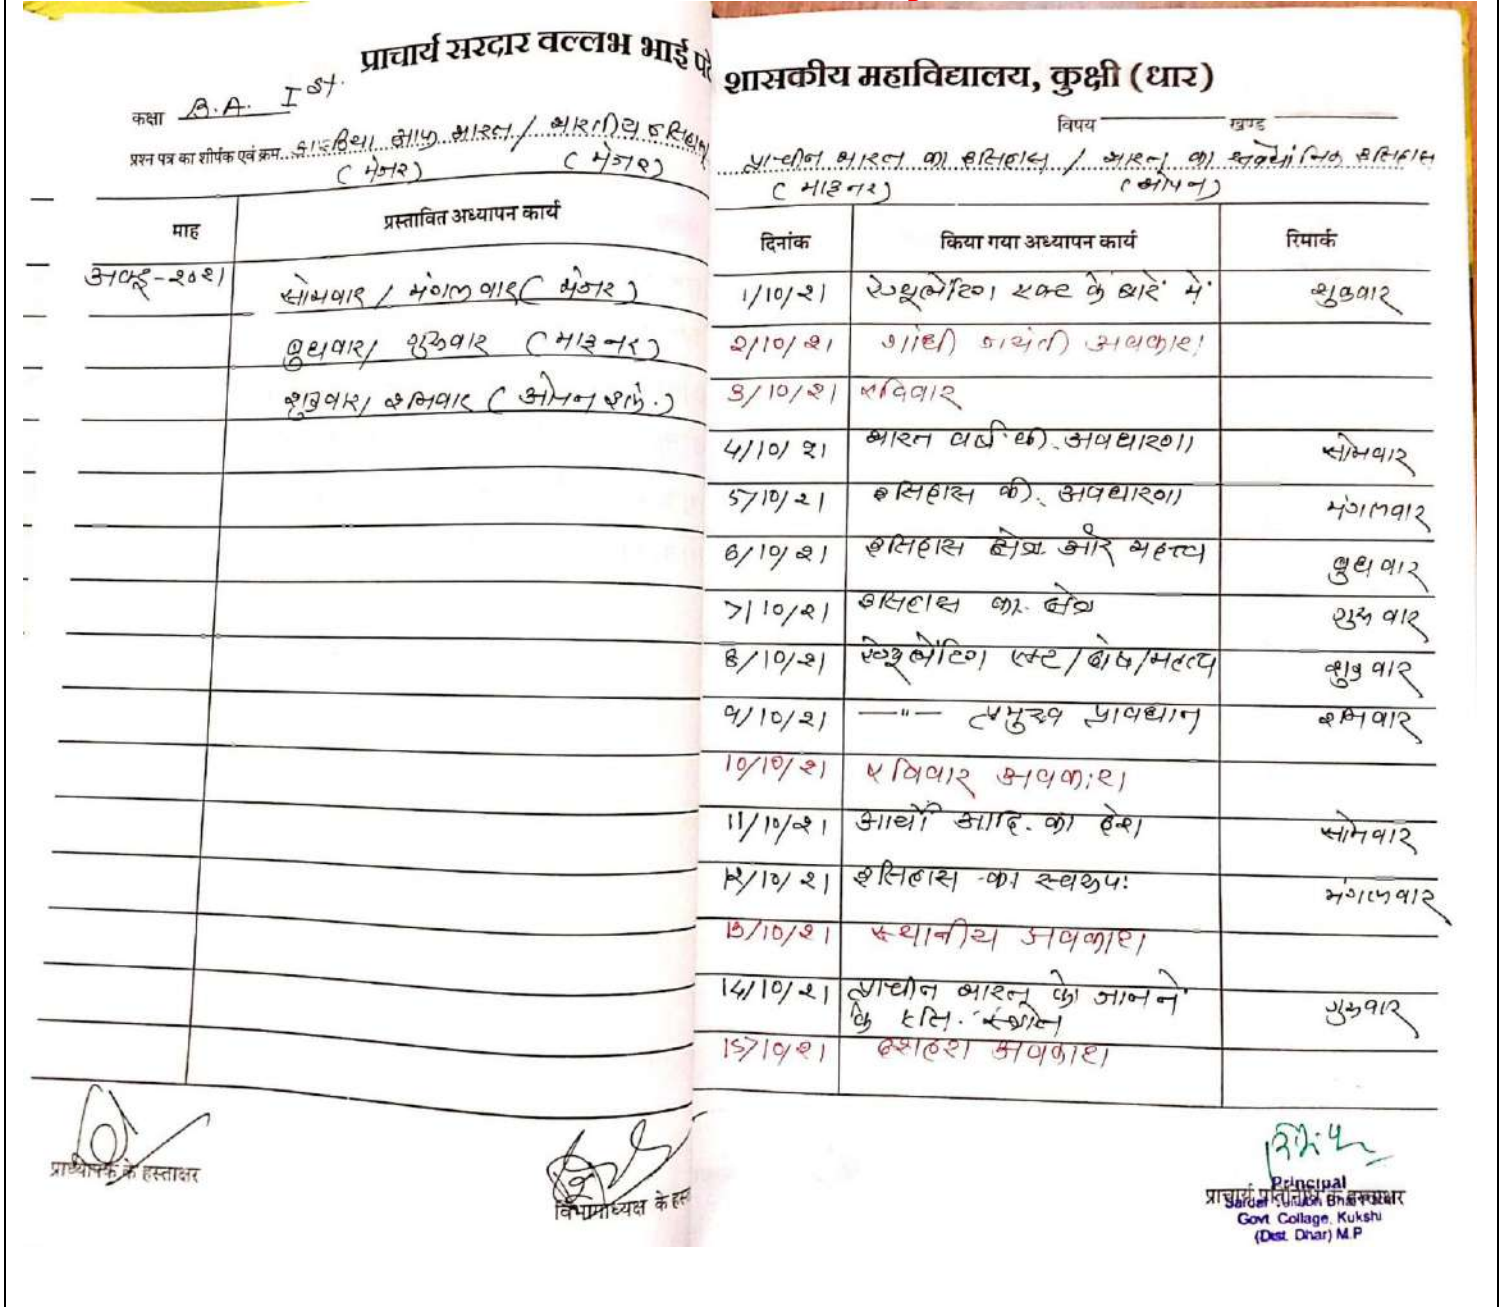 प्राचार्य सरदार वल्लभ भाई पटे शासकीय महाविद्यालय, कुक्षी (धार)
कक्षा B.A. Ist.
विषय खण्ड
प्रश्न पत्र का शीर्षक एवं क्रम आइडिया आफ भारत / भारतीय इतिहास
(मेजर) (मेजर)
प्राचीन भारत का इतिहास / भारत का संवैधानिक इतिहास
(माइनर) (ओपन)
माह प्रस्तावित अध्यापन कार्य
अक्टू-२०२१ सोमवार / मंगलवार (मेजर)
बुधवार / गुरुवार (माइनर)
शुक्रवार / शनिवार (ओपन इले.)
दिनांक किया गया अध्यापन कार्य रिमार्क
1/10/२1 रेग्यूलेटिंग एक्ट के बारे में शुक्रवार
२/10/२1 गांधी जयंती अवकाश
3/10/२1 रविवार
4/10/२1 भारत वर्ष की अवधारणा सोमवार
5/10/२1 इतिहास की अवधारणा मंगलवार
6/10/२1 इतिहास क्षेत्र और महत्व बुधवार
7/10/२1 इतिहास का क्षेत्र गुरुवार
8/10/२1 रेग्यूलेटिंग एक्ट / दोष / महत्व शुक्रवार
9/10/२1 —"— प्रमुख प्रावधान शनिवार
10/10/२1 रविवार अवकाश
11/10/२1 आर्यों आदि का देश सोमवार
1२/10/२1 इतिहास का स्वरूप: मंगलवार
13/10/२1 स्थानीय अवकाश
14/10/२1 प्राचीन भारत को जानने गुरुवार
के इति. स्त्रोत
15/10/२1 दशहरा अवकाश
प्राध्यापक के हस्ताक्षर
विभागाध्यक्ष के हस्त
प्राचार्य प्रतिनिधि के हस्ताक्षर
Principal
Sardar Bhai
Govt. Collage, Kukshi
(Dist. Dhar) M.P